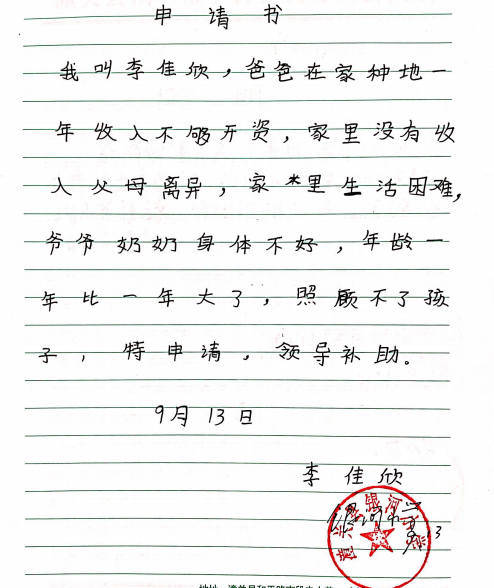 申请书
我叫李佳欣，爸爸在家种地一
年收入不够开资，家里没有收
入父母离异，家里生活困难，
爷爷奶奶身体不好，年龄一
年比一年大了，照顾不了孩
子，特申请，领导补助。
9月13日
李佳欣
银河